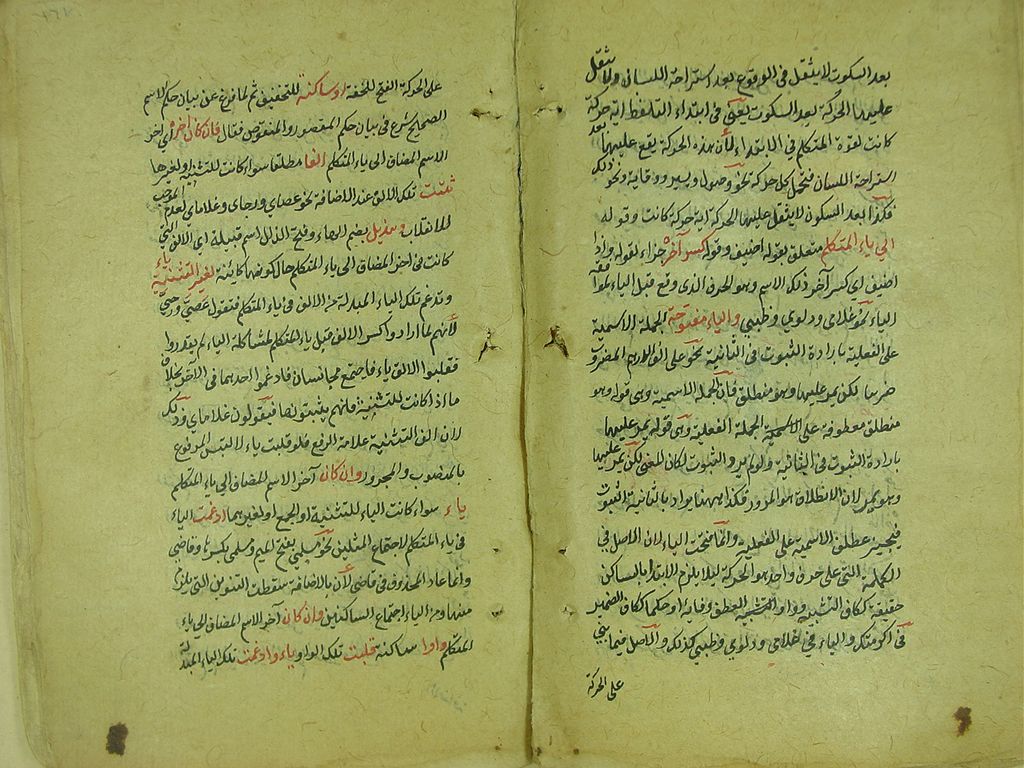 بعد السكوت لا يثقل في الوقوع بعد استراحة اللسان ولا يثقل
عليها الحركة بعد السكوت يعني في ابتداء التلفظ اية حركة
كانت لقوة المتكلم في الابتداء لأن هذه الحركة يقع عليها بعد
استراحة اللسان فتحمل كل حركة نحو وصول و يسر و وقاية ونحو ذلك
فكذا بعد السكون لا يثقل عليها الحركة اية حركة كانت وقوله
الي ياء المتكلم متعلق بقوله اضيف وقوله كسر آخره جزاء لقوله واذا
اضيف اي كسر آخر ذلك الاسم وهو الحرف الذي وقع قبل الياء لموافقة
الياء نحو غلامي ودلوي وظبيي والياء مفتوحة الجملة الاسمية
على الفعلية بارادة الثبوت في الثانية نحو
لكن يمر عليها وهو منطلق فان الجملة الاسمية وهي قوله وهو
منطلق معطوفة على الجملة الفعلية وهي قوله يمر عليها
بارادة الثبوت في الثانية ولو لم يرد الثبوت لكان المعنى لكن يمر عليها
وهو يمر لان الانطلاق هو المرور فكذا ههنا يراد بالثانية الثبوت
عطف الاسمية على الفعلية وانما فتحت الياء لان الاصل في
الكلمة التي على حرف واحد هو الحركة لئلا يلزم الابتداء بالساكن
حقيقة ككاف التشبيه وواو العطف وفائه او حكما ككاف الضمير
في اكرمتك والياء في غلامي ودلوي وظبيي كذلك والاصل فيما بني
على الحركة
على الحركة الفتح للخفة او ساكنة للتخفيف ثم لما فرغ عن بيان حكم الاسم
الصحيح شرع في بيان حكم المقصور والمنقوص فقال فان كان آخره اي آخر
الاسم المضاف الى ياء المتكلم الفا مطلقا سواء كانت للتثنية او لغيرها
ثبتت تلك الالف عند الاضافة نحو عصاي ورجاي وغلاماي لعدم الموجب
للانقلاب وهذيل بضم الهاء وفتح الذال اسم قبيلة اي الالف التي
كانت في آخر المضاف الى ياء المتكلم حال كونها كائنة لغير التثنية ياء
وتدغم تلك الياء المبدلة من الالف في ياء المتكلم فتقول عصيّ ورحيّ
لأنهم لما ارادوا كسر الالف قبل ياء المتكلم لمشاكلة الياء لم يقدروا
فقلبوا الالف ياء فاجتمع مجانسان فادغموا احدهما في الآخر بخلاف
ما اذا كانت للتثنية فانهم يثبتونها فيقولون غلاماي وذلك
لان الف التثنية علامة الرفع فلو قلبت ياء لالتبس المرفوع
بالمنصوب والمجرور وان كان آخر الاسم المضاف الى ياء المتكلم
ياء سواء كانت الياء للتثنية او الجمع او لغيرهما ادغمت الياء
في ياء المتكلم لاجتماع المثلين نحو مسلمي بفتح الميم ومسلمي بكسرها وقاضي
وانما عاد المحذوف في قاضي لأن بالاضافة سقطت التنوين التي يلزم
منها ومن الياء اجتماع الساكنين وان كان آخر الاسم المضاف الى ياء
المتكلم واوا ساكنة قلبت تلك الواو ياء وادغمت تلك الياء المبدلة